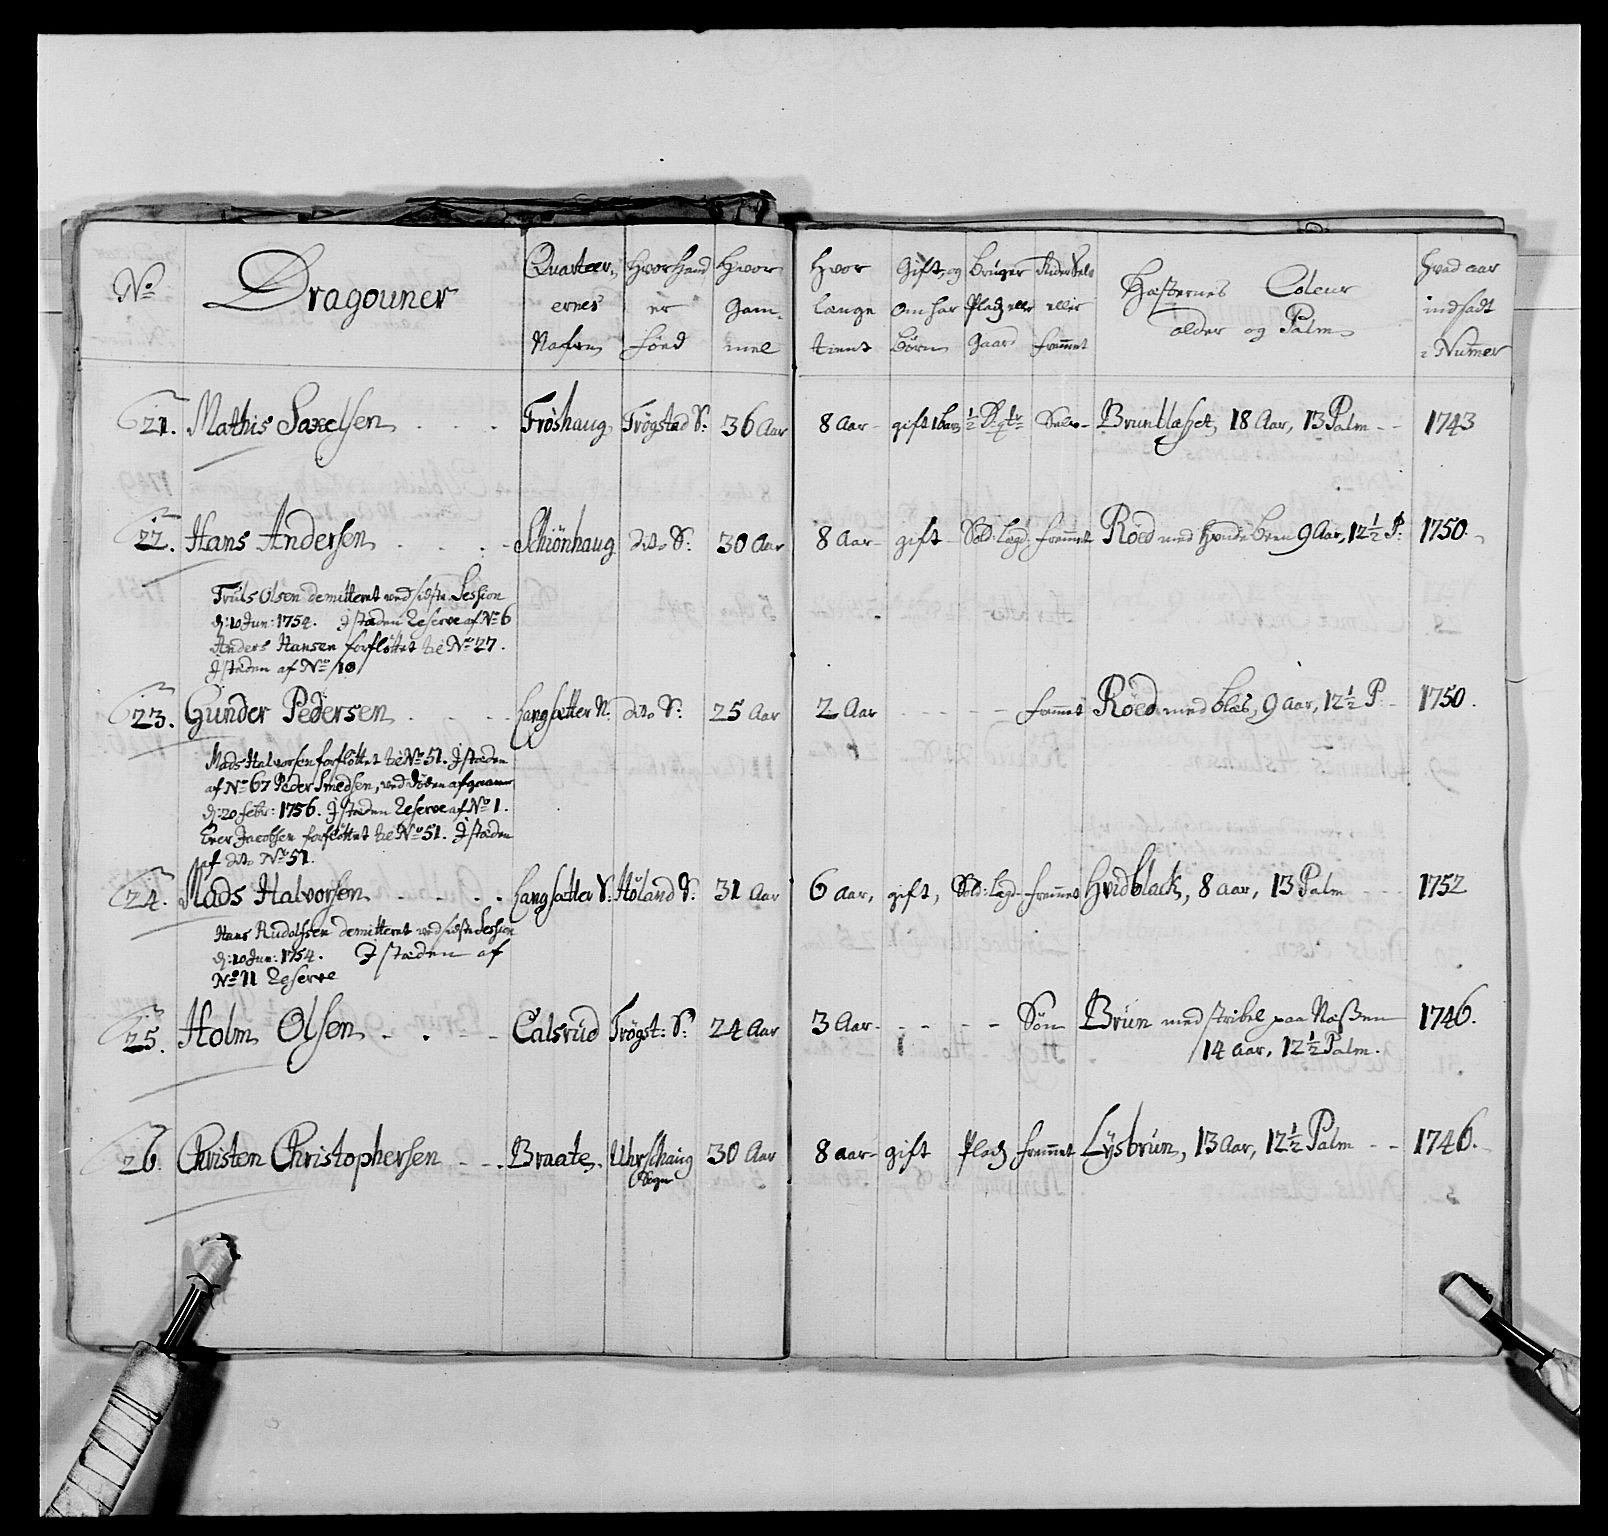 No
Dragouner
Quarteer, ernes Nafn
Hvor Hand er Föed
Hvor Gam, mel
Hvor længe tient
Gift, og om har Börn
Brúger Pladz eller Gaard
Rider Selv eller fremmet
Hæsternes Coleur alder og Palm
Hvad aar indsadt i Numer
21. Mathis Saxelsen Fröshaug Trögstad S: 36 Aar 8 Aar gift 1 barn ½ Selv Bruntlæsset, 18 Aar, 13 Palm 1743
22. Hans Andersen Schiönhaug dito S: 30 Aar 8 Aar gift Sold: Legd: fremmet Röed med hvide been 9 Aar, 12½ P: 1750.
Truls Olsen demitteret ved sidste Session
d: 10 Jun: 1754. I stæden Reserve af No 6
Anders Hansen forflöttet til No 27.
I stæden af No 10
23. Gunder Pedersen Langsætter N: dito S: 25 Aar 2 Aar fremmet Röed med blis, 9 aar, 12½ P. 1750.
Mads Halvorsen forflöttet til No 51. I stæden
af No 67 Peder Smedsen, ved döden afgaaen
d: 20 Febr: 1756. I stæden Reserve af No 1.
Iver Jacobsen forflöttet til No 51. I stæden
af dito No 51.
24. Mads Halvorsen Langsætter S: Höland S: 31 Aar 6 aar, gift, Sold: Legd fremmet Hvidblack, 8 aar, 13 Palm 1752
Hans Rudolfsen demitteret ved sidste Session
d: 10 Jun: 1754. I stæden af
No 11 Reserve
25. Holm Olsen Calsrud Trögst: S: 24 Aar 3 Aar Sön Brún med stribel paa Nassen 1746.
14 aar, 12½ Palm.
26. Christen Christophersen Braate Uhrschaug 30 Aar 8 aar gift Pladz fremmet Lysbrún, 13 Aar, 12½ Palm 1746.
Sogn